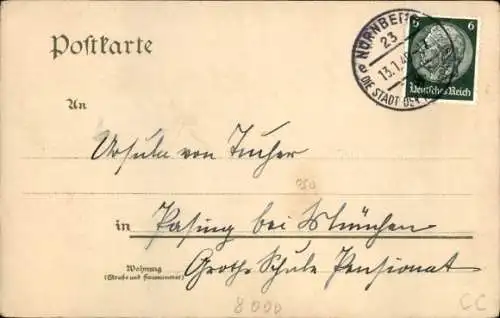 Postkarte
NÜRNBERG
23
13.1.4
DIE STADT DER
6 6
Deutsches Reich
An
Ursula von Tucher
in Pasing bei München
Wohnung
(Straße und Hausnummer)
Schule Pensionat
8000
CC